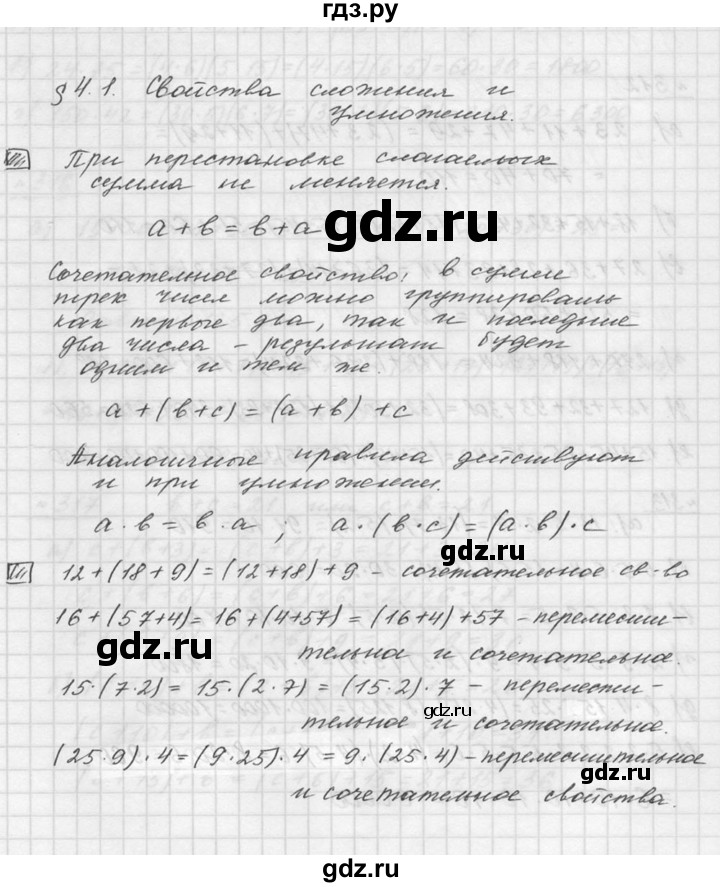 гдз.ру
§ 4.1. Свойства сложения и
умножения.
При перестановке слагаемых
сумма не меняется.
a + b = b + a
gdz.ru
Сочетательное свойство: в сумме
трех чисел можно группировать
как первые два, так и последние
два числа – результат будет
одним и тем же.
a + (b + c) = (a + b) + c
Аналогичные правила действуют
и при умножении.
a · b = b · a ; a · (b · c) = (a · b) · c
gdz.ru
12 + (18 + 9) = (12 + 18) + 9 – сочетательное св-во
16 + (57 + 4) = 16 + (4 + 57) = (16 + 4) + 57 – перемести-
gdz.ru
тельное и сочетательное.
15 · (7 · 2) = 15 · (2 · 7) = (15 · 2) · 7 – перемести-
gdz.ru
тельное и сочетательное.
(25 · 9) · 4 = (9 · 25) · 4 = 9 · (25 · 4) – переместительное
gdz.ru
и сочетательное свойства.
gdz.ru